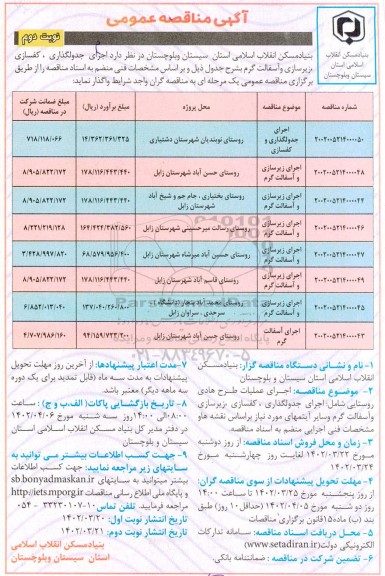 آگهی مناقصه عمومی
نوبت دوم
بنیاد مسکن انقلاب اسلامی
استان
سیستان وبلوچستان
بنیادمسکن انقلاب اسلامی استان سیستان وبلوچستان در نظر دارد اجرای جدولگذاری ، کفسازی
،زیرسازی وآسفالت گرم بشرح جدول ذیل و براساس مشخصات فنی منضم به اسناد مناقصه را از طریق
برگزاری مناقصه عمومی یک مرحله ای به مناقصه گران واجد شرایط واگذار نماید:
شماره مناقصه موضوع مناقصه محل پروژه مبلغ برآورد (ریال) مبلغ ضمانت شرکت در مناقصه (ریال)
اجرای جدولگذاری و کفسازی روستای نوبندیان شهرستان دشتیاری ۱۴/۳۶۲/۳۶۱/۳۲۵ ۷۱۸/۱۱۸/۰۶۶
اجرای زیرسازی و آسفالت گرم روستای حسن آباد شهرستان زابل ۱۷۸/۱۱۶/۴۴۳/۴۴۰ ۸/۹۰۵/۸۲۲/۱۷۲
اجرای زیرسازی و آسفالت گرم روستای بختیاری ، جام جم و شیخ آباد شهرستان زابل ۱۷۸/۱۱۶/۴۴۳/۴۴۰ ۸/۹۰۵/۸۲۲/۱۷۲
اجرای زیرسازی و آسفالت گرم روستای رسالت میرحسینی شهرستان زابل ۱۶۴/۴۲۲/۳۸۲/۵۶۰ ۸/۲۲۱/۲۱۹/۱۲۸
اجرای زیرسازی و آسفالت گرم روستای حسین آباد میرشاه شهرستان زابل ۶۸/۵۷۹/۹۵۶/۴۰۰ ۳/۴۲۸/۹۹۷/۸۲۰
اجرای زیرسازی و آسفالت گرم روستای قاسم آباد شهرستان زابل ۱۷۸/۱۱۶/۴۴۳/۴۴۰ ۸/۹۰۵/۸۲۲/۱۷۲
اجرای زیرسازی و آسفالت گرم سرحدی ، سراوان زابل ۶/۸۵۲/۰۱۳/۰۴۰
اجرای آسفالت گرم روستای حسن آباد شهرستان زابل ۴/۷۰۷/۹۸۶/۱۶۰
۰۲۱-۸۸۳۴۹۶۷۰-۵
۱- نام و نشانی دستگاه مناقصه گزار: بنیادمسکن
انقلاب اسلامی استان سیستان و بلوچستان
۲- موضوع مناقصه: اجرای عملیات طرح هادی
روستایی شامل: اجرای جدولگذاری ، کفسازی ،زیرسازی
وآسفالت گرم وسایر آیتمهای مورد نیاز براساس نقشه هاو
مشخصات فنی اجرایی منضم به اسناد مناقصه.
۳- زمان و محل فروش اسناد مناقصه: از روز دوشنبه
مورخ ۱۴۰۲/۰۳/۲۲ لغایت روز چهارشنبه مورخ
۱۴۰۲/۰۳/۲۴
۴- مهلت تحویل پیشنهادات از سوی مناقصه گران:
از روز پنجشنبه مورخ ۱۴۰۲/۰۳/۲۵ تا ساعت ۱۴:۰۰
روز دو شنبه مورخ ۱۴۰۲/۰۴/۰۵ (حداقل ۱۰ روز) طبق
بند (ب) ماده۱۵قانون برگزاری مناقصات
۵- محل دریافت اسناد مناقصه: سامانه تدارکات
الکترونیکی دولت(www.setadiran.ir)
۶- تضمین شرکت در مناقصه : ضمانتنامه بانکی.
۷-مدت اعتبار پیشنهادها: از آخرین روز مهلت تحویل
پیشنهادات به مدت سه ماه (قابل تمدید برای یک دوره
سه ماهه دیگر) معتبر باشد.
۸- تاریخ بازگشایی پاکات (الف،ب و ج): ساعت
۰۸:۰۰الی ۱۴:۰۰ روز سه شنبه مورخ ۱۴۰۲/۰۴/۰۶
در دفتر مدیر کل بنیاد مسکن انقلاب اسلامی استان
سیستان و بلوچستان
۹- جهت کسب اطلاعات بیشتر می توانید به
سایتهای زیر مراجعه نمایید: جهت کسب اطلاعات
بیشتر میتوانید به سایتهای sb.bonyadmaskan.ir
و پایگاه ملی اطلاع رسانی مناقصات http://iets.mporg.ir
مراجعه فرمایید. تلفن تماس ۱۰-۳۳۲۲۳۰۰۷ -۰۵۴
تاریخ انتشار نوبت اول: ۱۴۰۲/۰۳/۲۰
تاریخ انتشار نوبت دوم: ۱۴۰۲/۰۳/۲۱
بنیادمسکن انقلاب اسلامی
استان سیستان وبلوچستان